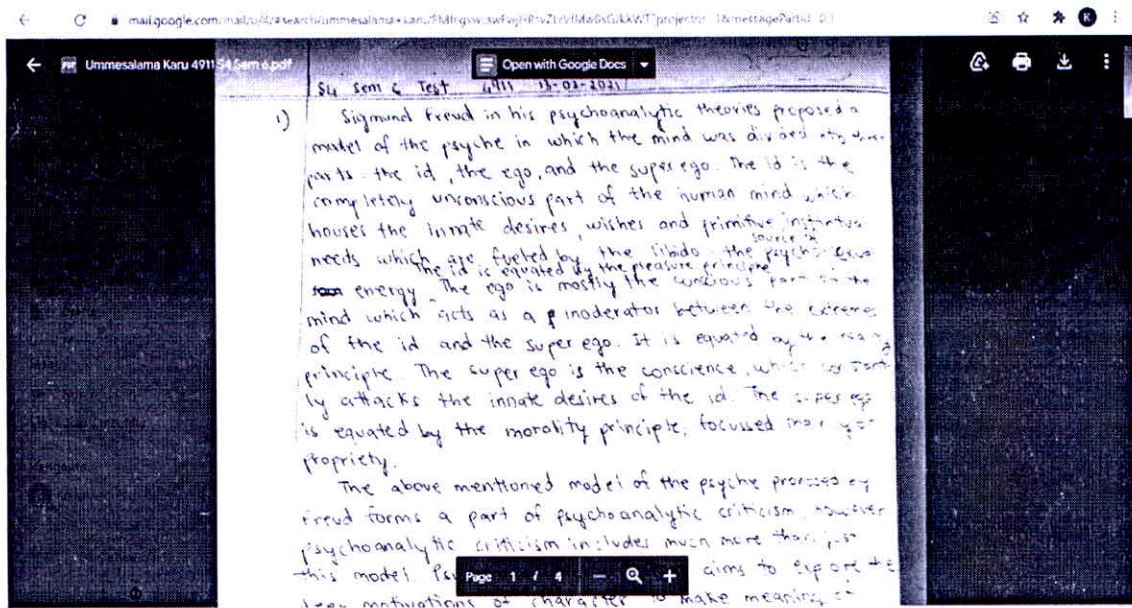 mail.google.com/mail/u/4/#search/ummesalama+karu/
Ummesalama Karu 4911 S4 Sem 6.pdf
Open with Google Docs
S4 Sem 6 Test 4911 13-03-2021
1) Sigmund Freud in his psychoanalytic theories proposed a
model of the psyche in which the mind was divided
parts - the id, the ego, and the super ego. The id is the
completely unconscious part of the human mind which
houses the innate desires, wishes and primitive
source of
needs which are fueled by the libido the psycho
The id is equated by the pleasure principle
energy. The ego is mostly the conscious part the
mind which acts as a moderator between the extremes
of the id and the super ego. It is equated by the
principle. The super ego is the conscience, which
ly attacks the innate desires of the id. The super ego
is equated by the morality principle, focussed
propriety.
The above mentioned model of the psyche
Freud forms a part of psychoanalytic criticism, however
psychoanalytic criticism includes much more than just
this model. aims to expore the
deep motivations of character to make meaning of
Page 1 / 4